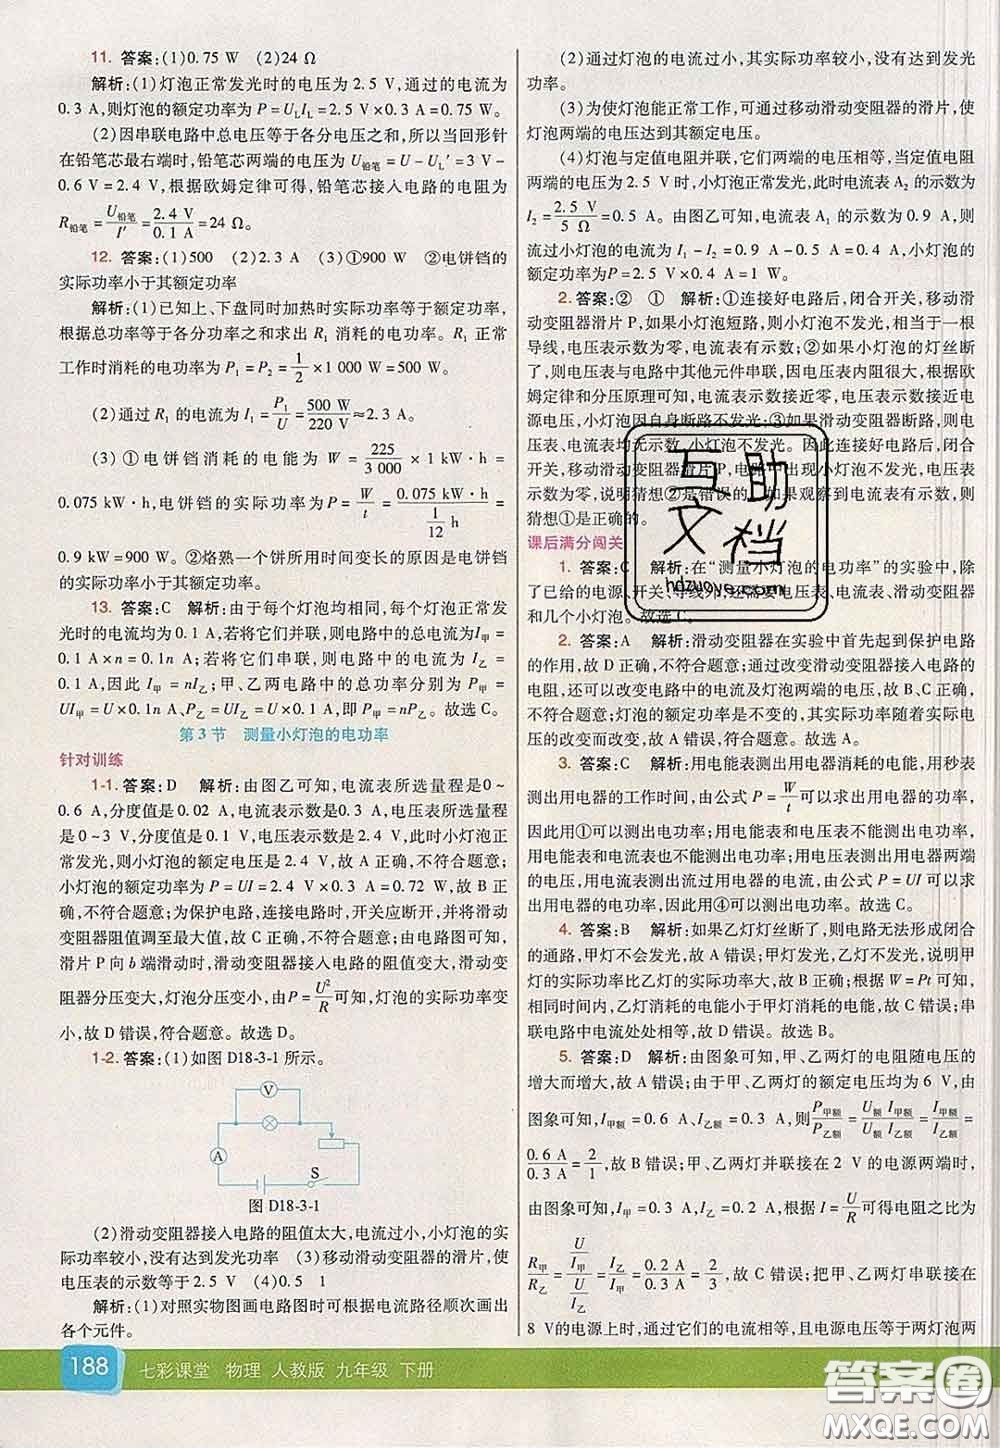 11. 答案:(1)0.75 W (2)24 Ω
解析:(1)灯泡正常发光时的电压为 2.5 V,通过的电流为
0.3 A,则灯泡的额定功率为 P=U_L I_L=2.5 V×0.3 A=0.75 W。
(2)因串联电路中总电压等于各分电压之和,所以当回形针
在铅笔芯最右端时,铅笔芯两端的电压为 U铅笔=U-U_L′=3 V-
0.6 V=2.4 V,根据欧姆定律可得,铅笔芯接入电路的电阻为
R铅笔=U铅笔/I′=2.4 V/0.1 A=24 Ω。
12. 答案:(1)500 (2)2.3 A (3)①900 W ②电饼铛的
实际功率小于其额定功率
解析:(1)已知上、下盘同时加热时实际功率等于额定功率,
根据总功率等于各分功率之和求出 R₁ 消耗的电功率。R₁ 正常
工作时消耗的电功率为 P₁=P₂=1/2×1 000 W=500 W。
(2)通过 R₁ 的电流为 I₁=P₁/U=500 W/220 V≈2.3 A。
(3)①电饼铛消耗的电能为 W=225/3 000×1 kW·h=
0.075 kW·h,电饼铛的实际功率为 P=W/t=0.075 kW·h/(1/12 h)=
0.9 kW=900 W。②烙熟一个饼所用时间变长的原因是电饼铛
的实际功率小于其额定功率。
13. 答案:C 解析:由于每个灯泡均相同,每个灯泡正常发
光时的电流均为 0.1 A,若将它们并联,则电路中的总电流为 I甲=
0.1 A×n=0.1n A;若将它们串联,则电路中的电流为 I乙=
0.1 A,因此 I甲=nI乙;甲、乙两电路中的总功率分别为 P甲=
UI甲=U×0.1n、P乙=UI乙=U×0.1,即 P甲=nP乙。故选 C。
第 3 节 测量小灯泡的电功率
针对训练
1-1. 答案:D 解析:由图乙可知,电流表所选量程是0~
0.6 A,分度值是 0.02 A,电流表示数是0.3 A,电压表所选量程
是 0~3 V,分度值是 0.1 V,电压表示数是 2.4 V,此时小灯泡正
常发光,则小灯泡的额定电压是 2.4 V,故 A 正确,不符合题意;
小灯泡的额定功率为 P=UI=2.4 V×0.3 A=0.72 W,故 B 正
确,不符合题意;为保护电路,连接电路时,开关应断开,并将滑动
变阻器阻值调至最大值,故 C 正确,不符合题意;由电路图可知,
滑片 P 向 b 端滑动时,滑动变阻器接入电路的阻值变大,滑动变
阻器分压变大,灯泡分压变小,由 P=U²/R可知,灯泡的实际功率变
小,故 D 错误,符合题意。故选 D。
1-2. 答案:(1)如图 D18-3-1 所示。
V
A
S
图 D18-3-1
(2)滑动变阻器接入电路的阻值太大,电流过小,小灯泡的实
际功率较小,没有达到发光功率 (3)移动滑动变阻器的滑片,使
电压表的示数等于 2.5 V (4)0.5 1
解析:(1)对照实物图画电路图时可根据电流路径顺次画出
各个元件。
(2)通过灯泡的电流过小,其实际功率较小,没有达到发光
功率。
(3)为使灯泡能正常工作,可通过移动滑动变阻器的滑片,使
灯泡两端的电压达到其额定电压。
(4)灯泡与定值电阻并联,它们两端的电压相等,当定值电阻
两端的电压为 2.5 V 时,小灯泡正常发光,此时电流表 A₂ 的示数为
I₂=2.5 V/5 Ω=0.5 A。由图乙可知,电流表 A₁ 的示数为 0.9 A,则
流过小灯泡的电流为 I₁-I₂=0.9 A-0.5 A=0.4 A,小灯泡的
额定功率为 P=UI=2.5 V×0.4 A=1 W。
2. 答案:② ① 解析:①连接好电路后,闭合开关,移动滑
动变阻器滑片 P,如果小灯泡短路,则小灯泡不发光,相当于一根
导线,电压表示数为零,电流表有示数;②如果小灯泡的灯丝断
了,则电压表与电路中其他元件串联,因电压表内阻很大,根据欧
姆定律和分压原理可知,电流表示数接近零,电压表示数接近电
源电压,小灯泡因自身断路不发光;③如果滑动变阻器断路,则电
压表、电流表均无示数,小灯泡不发光。因此连接好电路后,闭合
开关,移动滑动变阻器滑片 P,电路中出现小灯泡不发光,电压表
示数为零,说明猜想②是错误的。如果观察到电流表有示数,则
猜想①是正确的。
课后满分闯关
1. 答案:C 解析:在“测量小灯泡的电功率”的实验中,除
了已给的电源、开关、导线外,还需要电压表、电流表、滑动变阻器
和几个小灯泡。故选 C。
2. 答案:A 解析:滑动变阻器在实验中首先起到保护电路
的作用,故 D 正确,不符合题意;通过改变滑动变阻器接入电路的
电阻,还可以改变电路中的电流及灯泡两端的电压,故 B、C 正确,
不符合题意;灯泡的额定功率是不变的,其实际功率随着实际电
压的改变而改变,故 A 错误,符合题意。故选 A。
3. 答案:C 解析:用电能表测出用电器消耗的电能,用秒表
测出用电器的工作时间,由公式 P=W/t可以求出用电器的功率,
因此用①可以测出电功率;用电能表和电压表不能测出电功率,
用电能表和电流表也不能测出电功率;用电压表测出用电器两端
的电压,用电流表测出流过用电器的电流,由公式 P=UI 可以求
出用电器的功率,因此用④可以测出电功率。故选 C。
4. 答案:B 解析:如果乙灯灯丝断了,则电路无法形成闭合
的通路,甲灯不会发光,故 A 错误;甲灯发光,乙灯不发光,说明甲
灯的实际功率比乙灯的实际功率大,故 B 正确;根据 W=Pt 可
知,在相同时间内,乙灯消耗的电能小于甲灯消耗的电能,故 C 错误;串
联电路中电流处处相等,故 D 错误。故选 B。
5. 答案:D 解析:由图象可知,甲、乙两灯的电阻随电压的
增大而增大,故 A 错误;由于甲、乙两灯的额定电压均为 6 V,由
图象可知,I甲额=0.6 A、I乙额=0.3 A,则P甲额/P乙额=U额I甲额/U额I乙额=I甲额/I乙额=
0.6 A/0.3 A=2/1,故 B 错误;甲、乙两灯并联在 2 V 的电源两端时,
由图象可知,I甲=0.3 A,I乙=0.2 A,根据 I=U/R可得电阻之比为
R甲/R乙=(U/I甲)/(U/I乙)=I乙/I甲=0.2 A/0.3 A=2/3,故 C 错误;把甲、乙两灯串联在
8 V的电源上时,通过它们的电流相等,且电源电压等于两灯泡两
互助
文档
hdzuoye.com
188 七彩课堂 物理 人教版 九年级 下册
答案圈
MXQE.COM